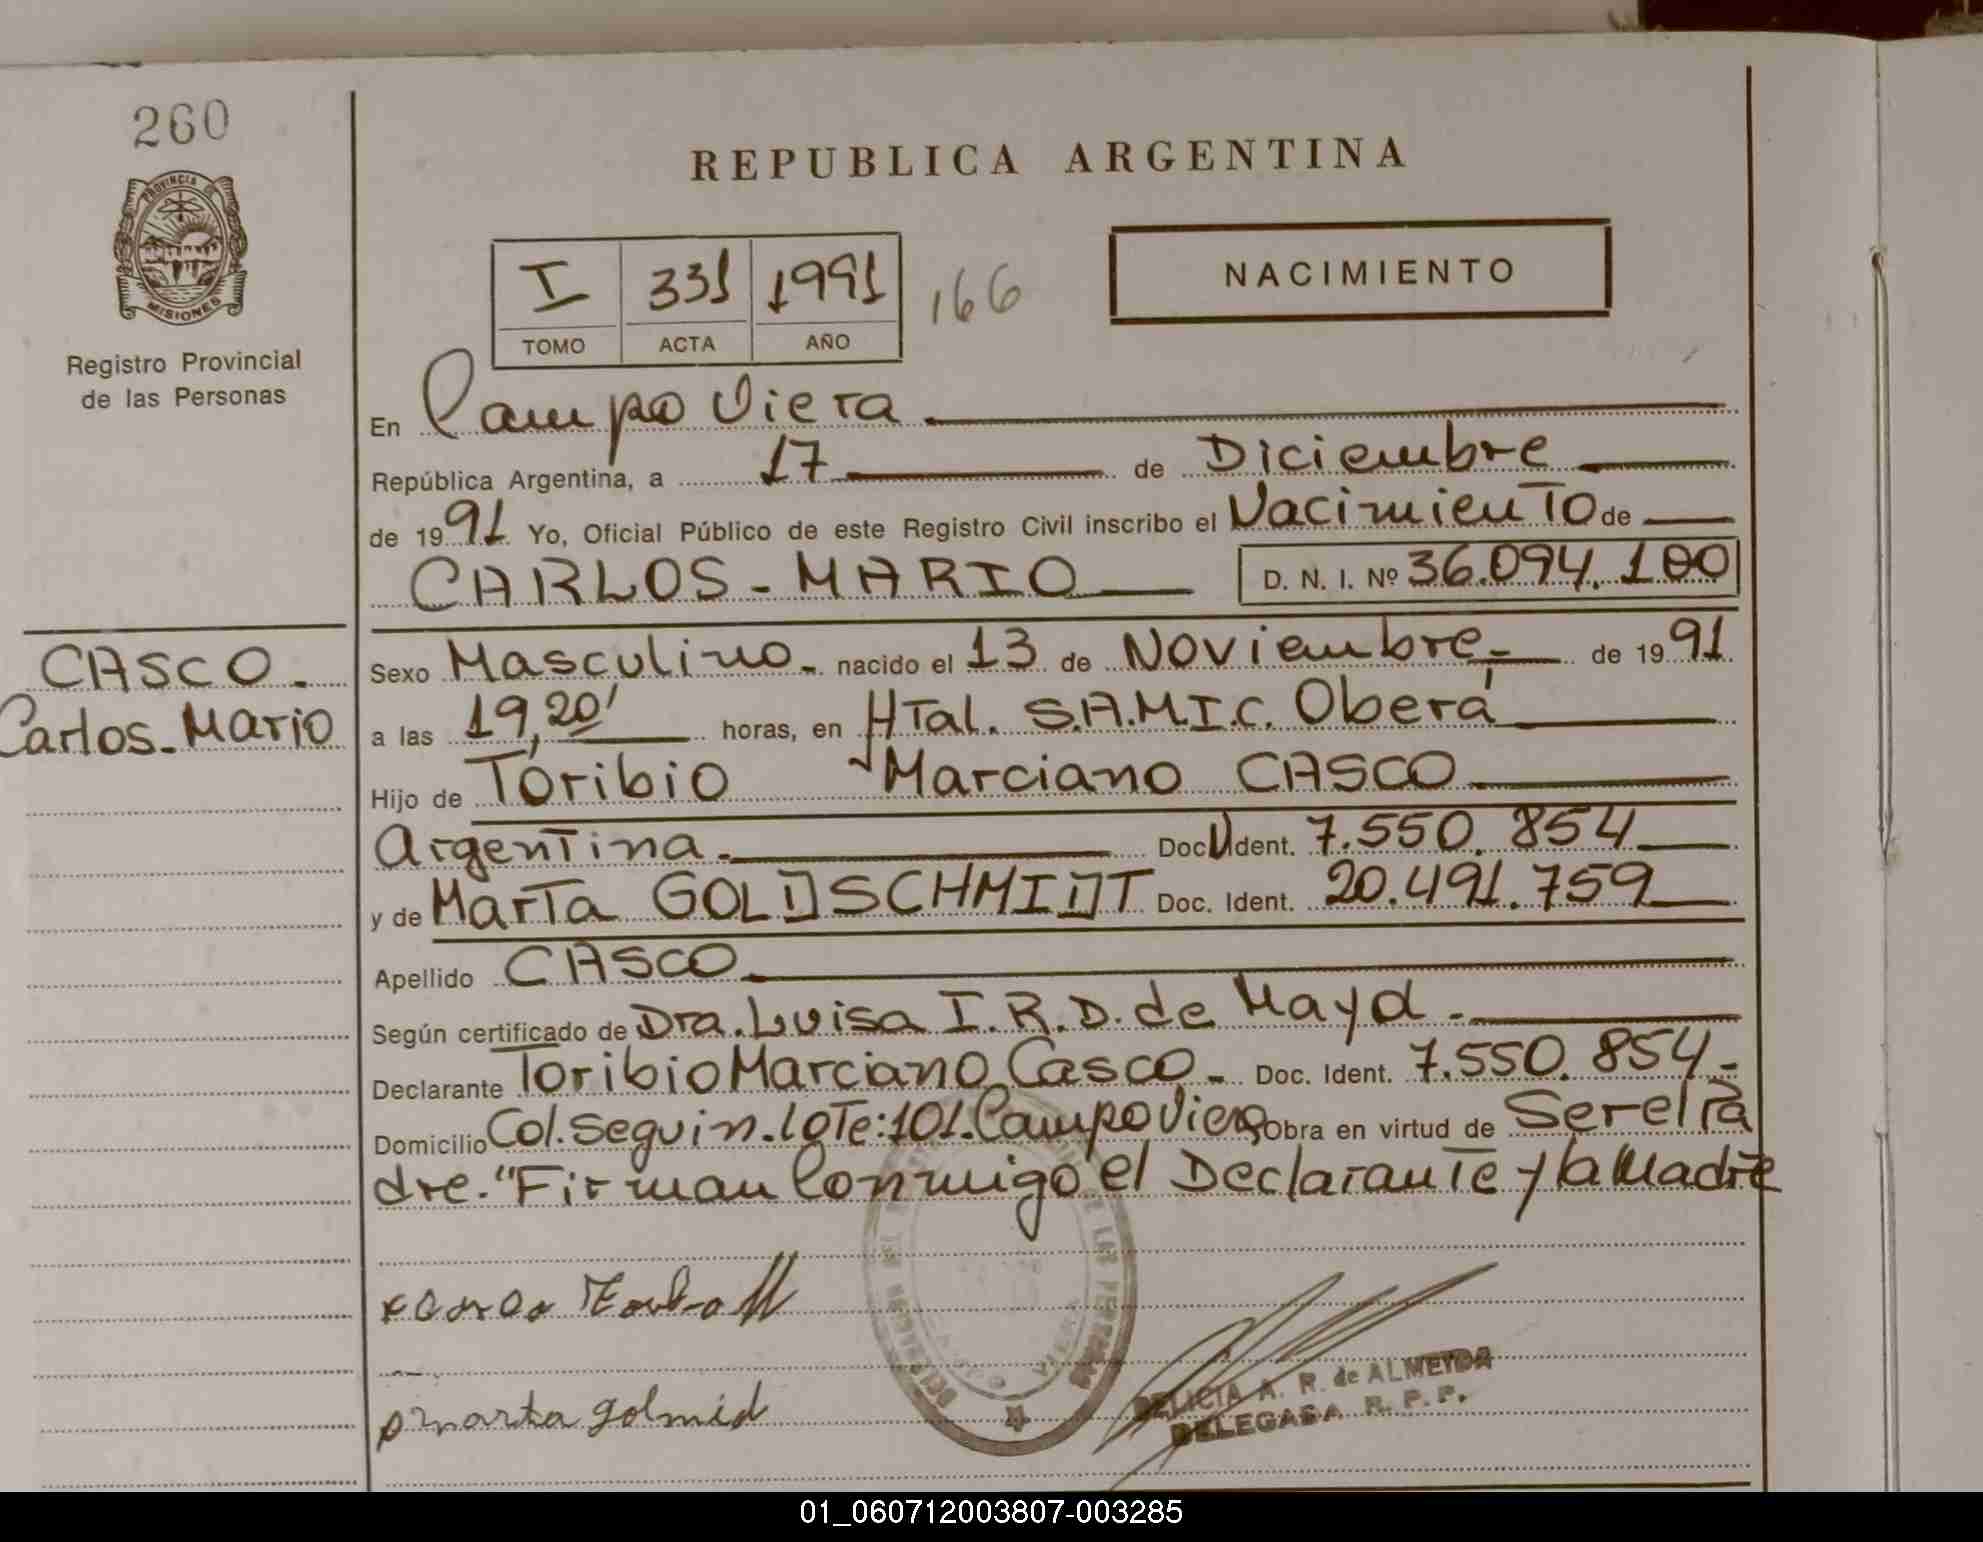 260
PROVINCIA DE
MISIONES
Registro Provincial
de las Personas
REPUBLICA ARGENTINA
I 331 1991 166
TOMO ACTA AÑO
NACIMIENTO
En Campo Viera
República Argentina, a 17 de Diciembre
de 1991 Yo, Oficial Público de este Registro Civil inscribo el Nacimiento de
CARLOS - MARIO D. N. I. Nº 36.094.100
CASCO.
Carlos - Mario
Sexo Masculino - nacido el 13 de Noviembre - de 1991
a las 19,20' horas, en HTal. S.A.M.I.C. Oberá
Hijo de Toribio Marciano CASCO
Argentina. Doc. Ident. 7.550.854
y de Marta GOLDSCHMIDT Doc. Ident. 20.491.759
Apellido CASCO
Según certificado de Dra. Luisa I. R. D. de Mayd.
Declarante Toribio Marciano Casco - Doc. Ident. 7.550.854 -
Domicilio Col. Seguin. Lote: 101. Campo Viera Obra en virtud de Ser el Pa
dre. "Firman Conmigo el Declarante y la Madre
marta golmid
DELICIA A. R. de ALMEYDA
DELEGADA R. P. P.
01_060712003807-003285